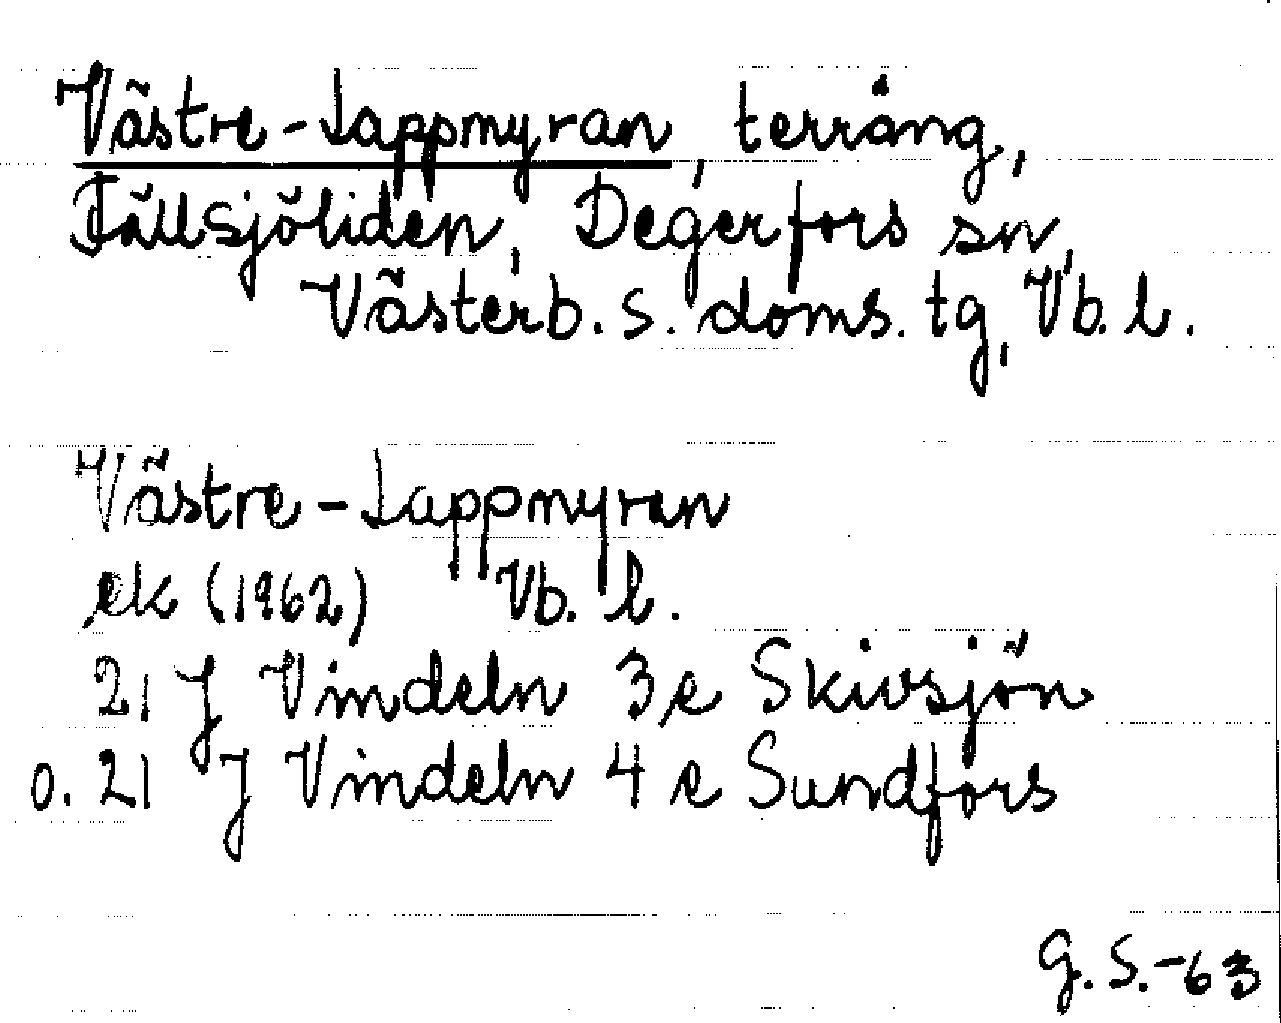 Västre-Lappmyran, terräng,
Fällsjöliden, Degerfors sn,
Västerb. s. doms. tg, Vb. l.
Västre-Lappmyran
ek (1962) Vb. l.
21 J Vindeln 3 e Skivsjön
o. 21 J Vindeln 4 e Sundfors
G. S.-63